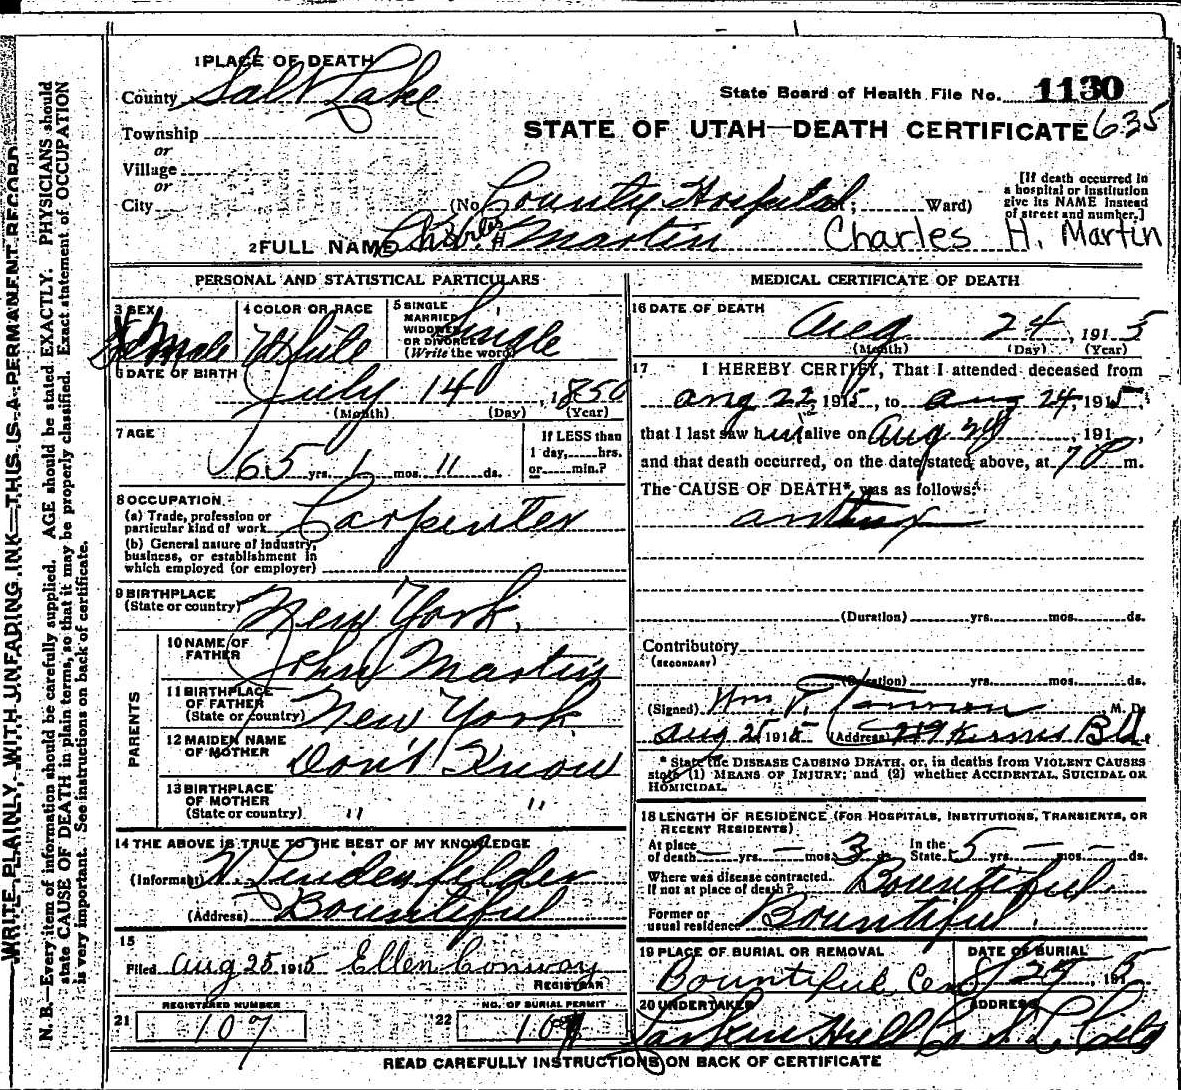 1 PLACE OF DEATH
County Salt Lake
State Board of Health File No. 1130
Township
STATE OF UTAH—DEATH CERTIFICATE 635
or
Village
or
City
(No. County Hospital; Ward)
[If death occurred in a hospital or institution give its NAME instead of street and number.]
2 FULL NAME Charles H Martin Charles H. Martin
PERSONAL AND STATISTICAL PARTICULARS
3 SEX male
4 COLOR OR RACE White
5 SINGLE MARRIED WIDOWED OR DIVORCED (Write the word) Single
6 DATE OF BIRTH
July 14, 1850
(Month) (Day) (Year)
7 AGE
65 yrs. 1 mos. 11 ds.
If LESS than 1 day, hrs. or min.?
8 OCCUPATION
(a) Trade, profession or particular kind of work Carpenter
(b) General nature of industry, business, or establishment in which employed (or employer)
9 BIRTHPLACE
(State or country) New York,
PARENTS
10 NAME OF FATHER John Martin
11 BIRTHPLACE OF FATHER (State or country) New York
12 MAIDEN NAME OF MOTHER Don't Know
13 BIRTHPLACE OF MOTHER (State or country) " "
14 THE ABOVE IS TRUE TO THE BEST OF MY KNOWLEDGE
(Informant) W. Lindenfelder
(Address) Bountiful
15
Filed Aug 25, 1915 Ellen Conway
REGISTRAR
REGISTERED NUMBER
21 107
NO. OF BURIAL PERMIT
22
MEDICAL CERTIFICATE OF DEATH
16 DATE OF DEATH
Aug 24, 1915
(Month) (Day) (Year)
17 I HEREBY CERTIFY, That I attended deceased from
Aug 22 1915, to Aug 24, 1915,
that I last saw him alive on Aug 24, 191 ,
and that death occurred, on the date stated above, at 7 P m.
The CAUSE OF DEATH*, was as follows:
anthrax
(Duration) yrs. mos. ds.
Contributory
(SECONDARY)
(Duration) yrs. mos. ds.
(Signed) Wm. T. M. D.
Aug 25 1915 (Address) 219 Kearns Bld.
* State the DISEASE CAUSING DEATH, or, in deaths from VIOLENT CAUSES
state (1) MEANS OF INJURY; and (2) whether ACCIDENTAL, SUICIDAL OR
HOMICIDAL.
18 LENGTH OF RESIDENCE (FOR HOSPITALS, INSTITUTIONS, TRANSIENTS, OR
RECENT RESIDENTS)
At place of death — yrs. — mos. 3 ds. In the State 5 yrs. — mos. — ds.
Where was disease contracted. If not at place of death? Bountiful
Former or usual residence Bountiful
19 PLACE OF BURIAL OR REMOVAL
Bountiful Cem
DATE OF BURIAL
8/25, 1915
20 UNDERTAKER ADDRESS
Larkin Hull Co S. L. City
READ CAREFULLY INSTRUCTIONS ON BACK OF CERTIFICATE
WRITE PLAINLY, WITH UNFADING INK—THIS IS A PERMANENT RECORD
N. B.—Every item of information should be carefully supplied. AGE should be stated EXACTLY. PHYSICIANS should
state CAUSE OF DEATH in plain terms, so that it may be properly classified. Exact statement of OCCUPATION
is very important. See instructions on back of certificate.